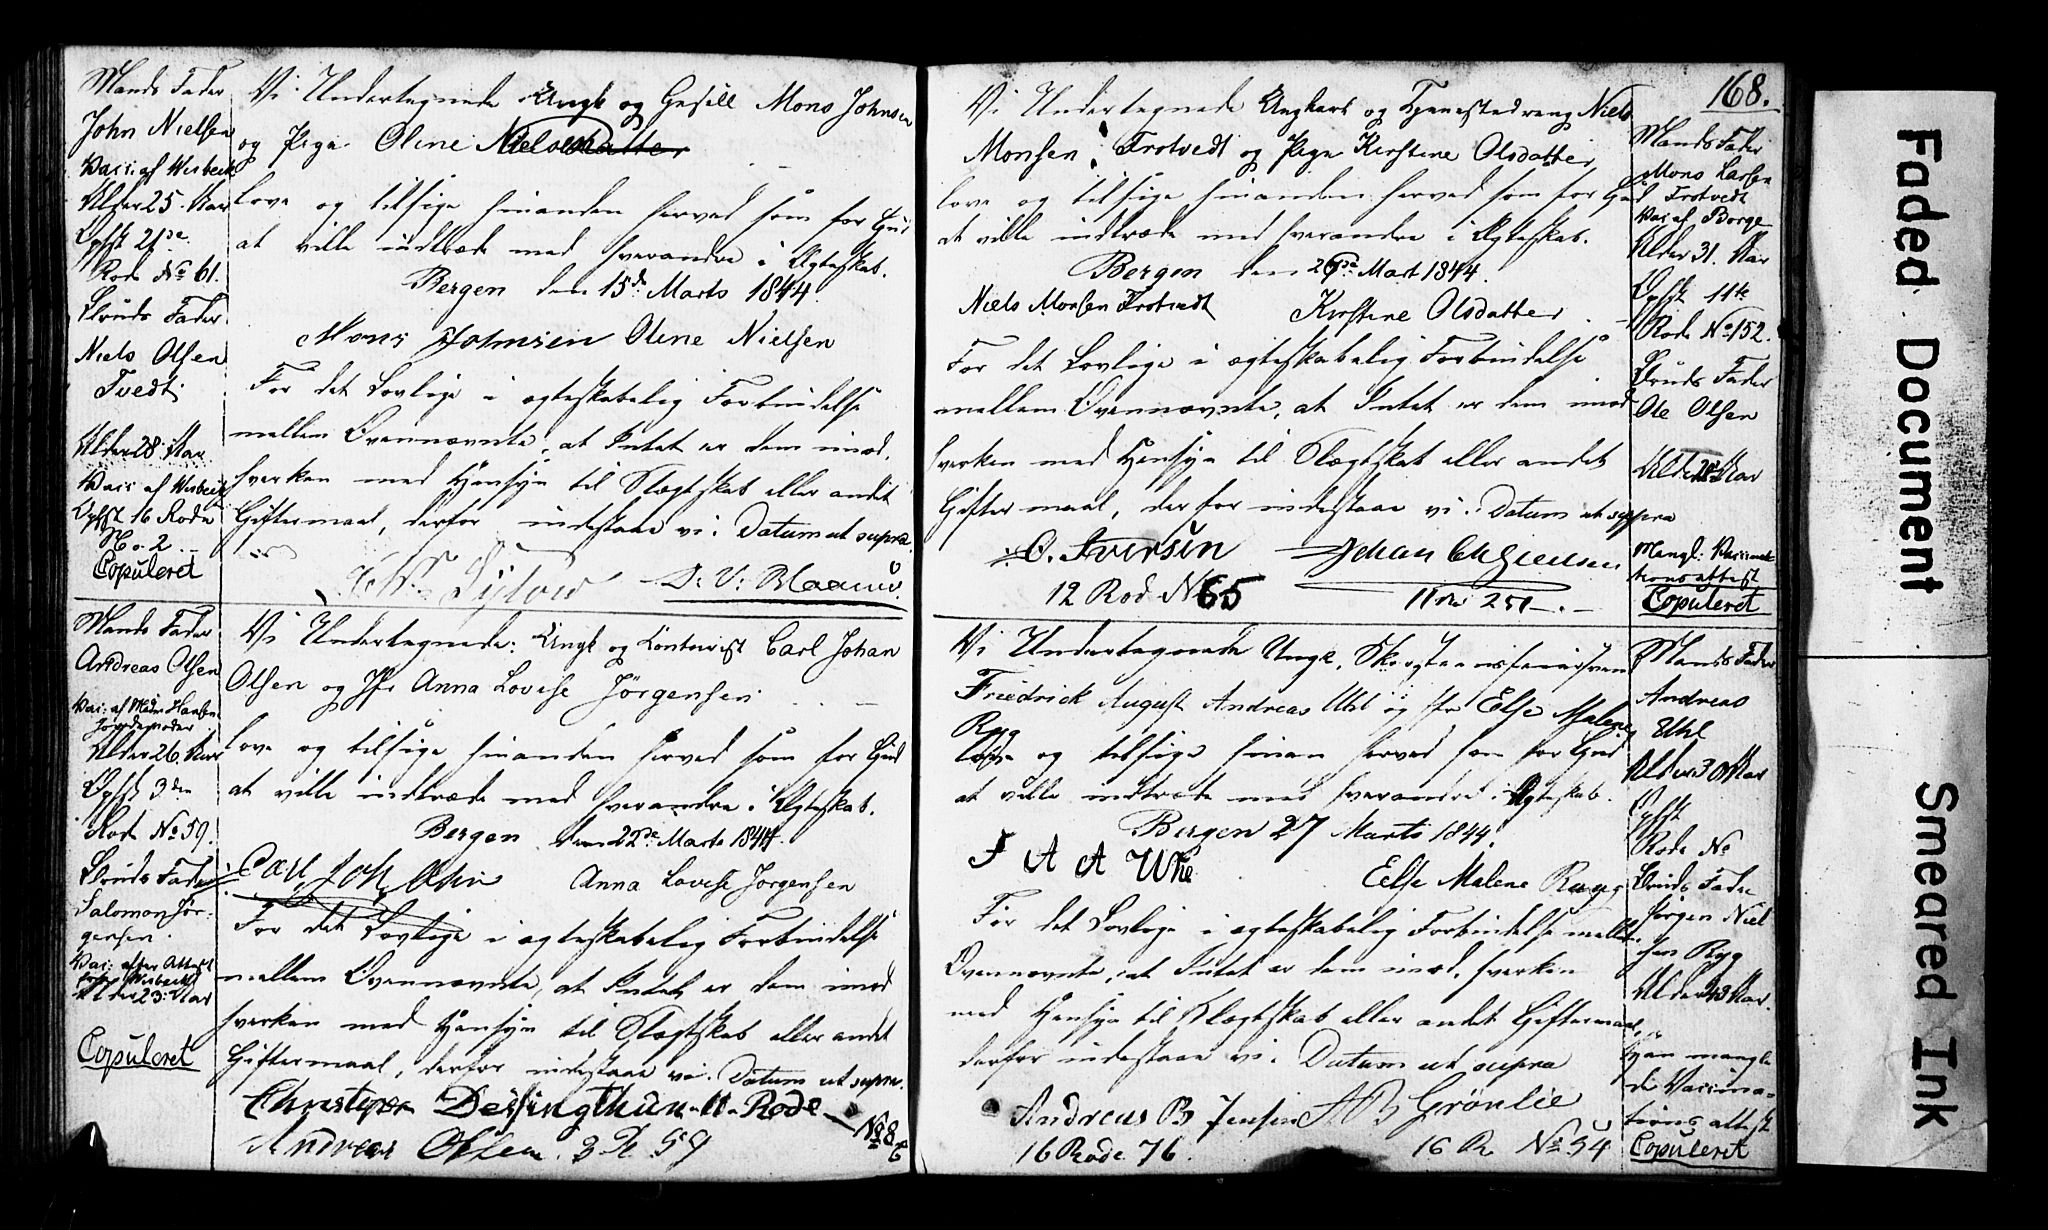 Mands Fader
John Nielsen
Vacc: af Wisbech
Alder 25 Aar
Opfst 21de
Rode No 61.
Bruds Fader
Niels Olsen
Tvedt
Alder 28 Aar
Vacc af Wisbech
Opfst 16 Rode
No 2
Copuleret
Vi Undertegnede Ungk og Gesell Mons Johnsen
og Pige Oline Nielsdatter
love og tilsige hinanden herved som for Gud
at ville indtræde med hverandre i Ægteskab.
Bergen den 15de Marts 1844.
Mons Johnsen Oline Nielsen
For det Lovlige i ægteskabelig Forbindelse
mellem Ovennævnte, at Intet er dem imod,
hverken med Hensyn til Slægtskab eller andet
Giftermaal, derfor indestaae vi. Datum ut supra.
Mands Fader
Andreas Olsen
Vac: af Mad: Hansen
Jordemoder
Alder 26 Aar
Opfst 3die
Rode No 59.
Bruds Fader
Salomon Jör-
gensen.
Vac: efter Attest
Wisbech
Alder 23 Aar
Copuleret
Vi Undertegnede: Ungk og Contorist Carl Johan
Olsen og Jfr Anna Lovise Jörgensen
love og tilsige hinanden herved som for Gud
at ville indtræde med hverandre i Ægteskab.
Bergen den 22de Marts 1844.
Carl Joh Olsen Anna Lovise Jorgensen
For det Lovlige i ægteskabelig Forbindelse
mellem Ovennævnte, at Intet er dem imod
hverken med Hensyn til Slægtskab eller andet
Giftermaal, derfor indestaae vi. Datum ut supra.
Rode No 8
Andreas Olsen 3 R 59
168.
Vi Undertegnede Ungkarl og Tjenestedreng Niels
Monsen Trotvedt og Pige Kirstene Olsdatter
love og tilsige hinanden herved som for Gud
at ville indtræde med hverandre i Ægteskab.
Bergen den Mart 1844.
Niels Monsen Trotvedt Kirstene Olsdatter
For det Lovlige i ægteskabelig Forbindelse
mellem Ovennævnte, at Intet er dem imod
hverken med Hensyn til Slægtskab eller andet
Giftermaal, derfor indestaae vi. Datum ut supra
O. Iversen Johan
12 Rod N 65 11 251
Mands Fader
Mons Larsen
Trotvedt
Vac af Borge
Alder 31 Aar
Opfst 11te
Rode No 152.
Bruds Fader
Ole Olsen
Alder Aar
Mangl: Vaccinati
onsattest
Copuleret
Vi Undertegnede Ungk. Skorsteensfeiersvend
Friedrick August Andreas Uhl og Jfr Eelse Malene
Ryg
love og tilsige hinan herved som for Gud
at ville indtræde med hverandre i Ægteskab.
Bergen 27 Marts 1844.
F A A Uhl Eelse Malene Ryg
For det Lovlige i ægteskabelig Forbindelse mellem
Ovennævnte, at Intet er dem imod, hverken
med Hensyn til Slægtskab eller andet Giftermaal,
derfor indestaae vi. Datum ut supra
Andreas B Jensen A B Grönlie
16 Rode 76. 16 R No 54
Mands Fader
Andreas
Uhl
Alder 30 Aar
Opfst
Rode No
Bruds Fader
Jörgen Niel
sen Ryg
Alder Aar
Hun mangle
de Vaccina-
tions attest
Copuleret
Faded Document
Smeared Ink